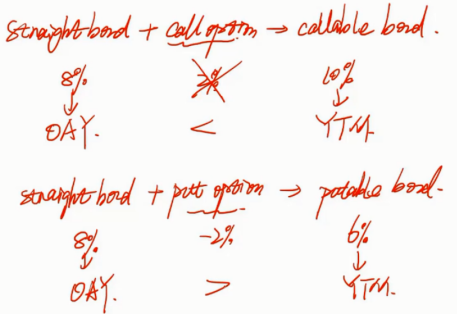 straight bond + call option → callable bond.
8% 2% 10%
↓ ↓
OAY. < YTM.
straight bond + put option → putable bond.
8% -2% 6%
↓ ↓
OAY. > YTM.